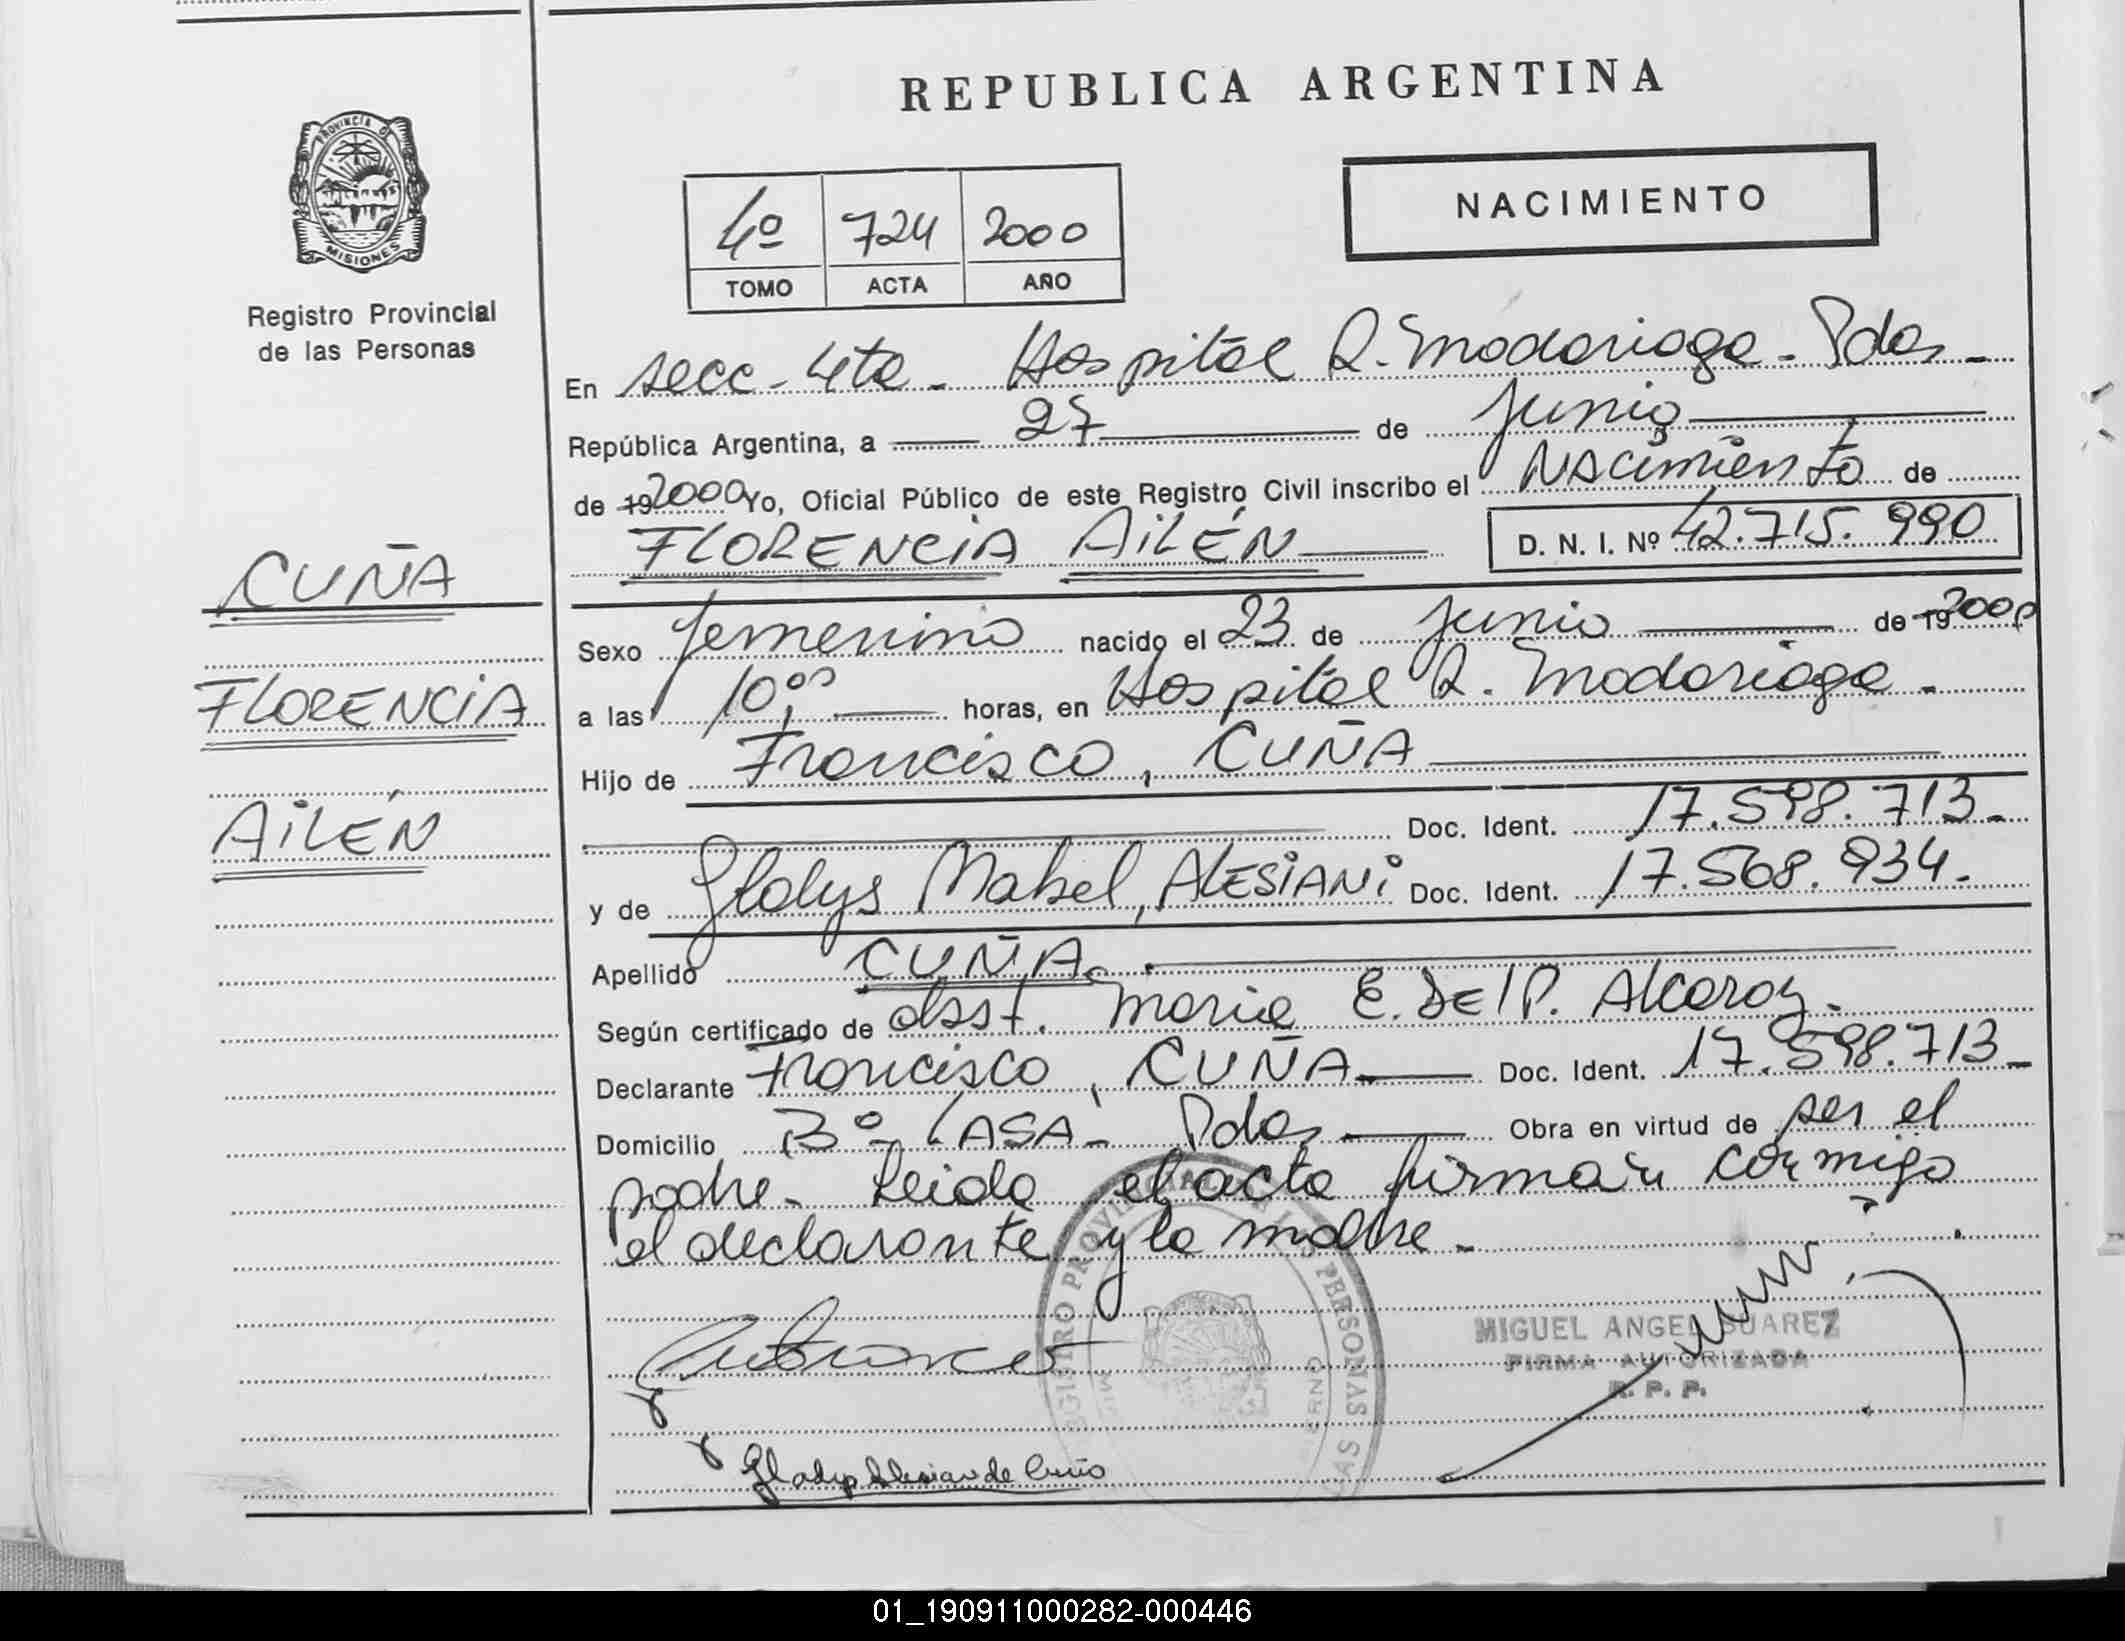 REPUBLICA ARGENTINA
PROVINCIA DE
MISIONES
Registro Provincial
de las Personas
4º 724 2000
TOMO ACTA AÑO
NACIMIENTO
En secc - 4ta - Hospital R. Madariaga - Pdas -
República Argentina, a 27 de junio
de 19 2000 Yo, Oficial Público de este Registro Civil inscribo el Nacimiento de
FLORENCIA AILÉN D. N. I. Nº 42.715.990
CUÑA
FLORENCIA
AILÉN
Sexo femenino nacido el 23 de junio de 19 2000
a las 10,00 horas, en Hospital R. Madariaga -
Hijo de Francisco, CUÑA
Doc. Ident. 17.598.713 -
y de Gladys Mabel, ALESIANI Doc. Ident. 17.568.934 -
Apellido CUÑA
Según certificado de obst. Maria E. DEL P. Alcaraz -
Declarante Francisco, CUÑA Doc. Ident. 17.598.713 -
Domicilio Bº LASA - Pdas Obra en virtud de ser el
padre - Leida el acta firman conmigo
el declarante y la madre -
REGISTRO PROVINCIAL DE LAS PERSONAS
MIGUEL ANGEL SUAREZ
FIRMA AUTORIZADA
R. P. P.
Gladys Alesiani de Cuña
01_190911000282-000446